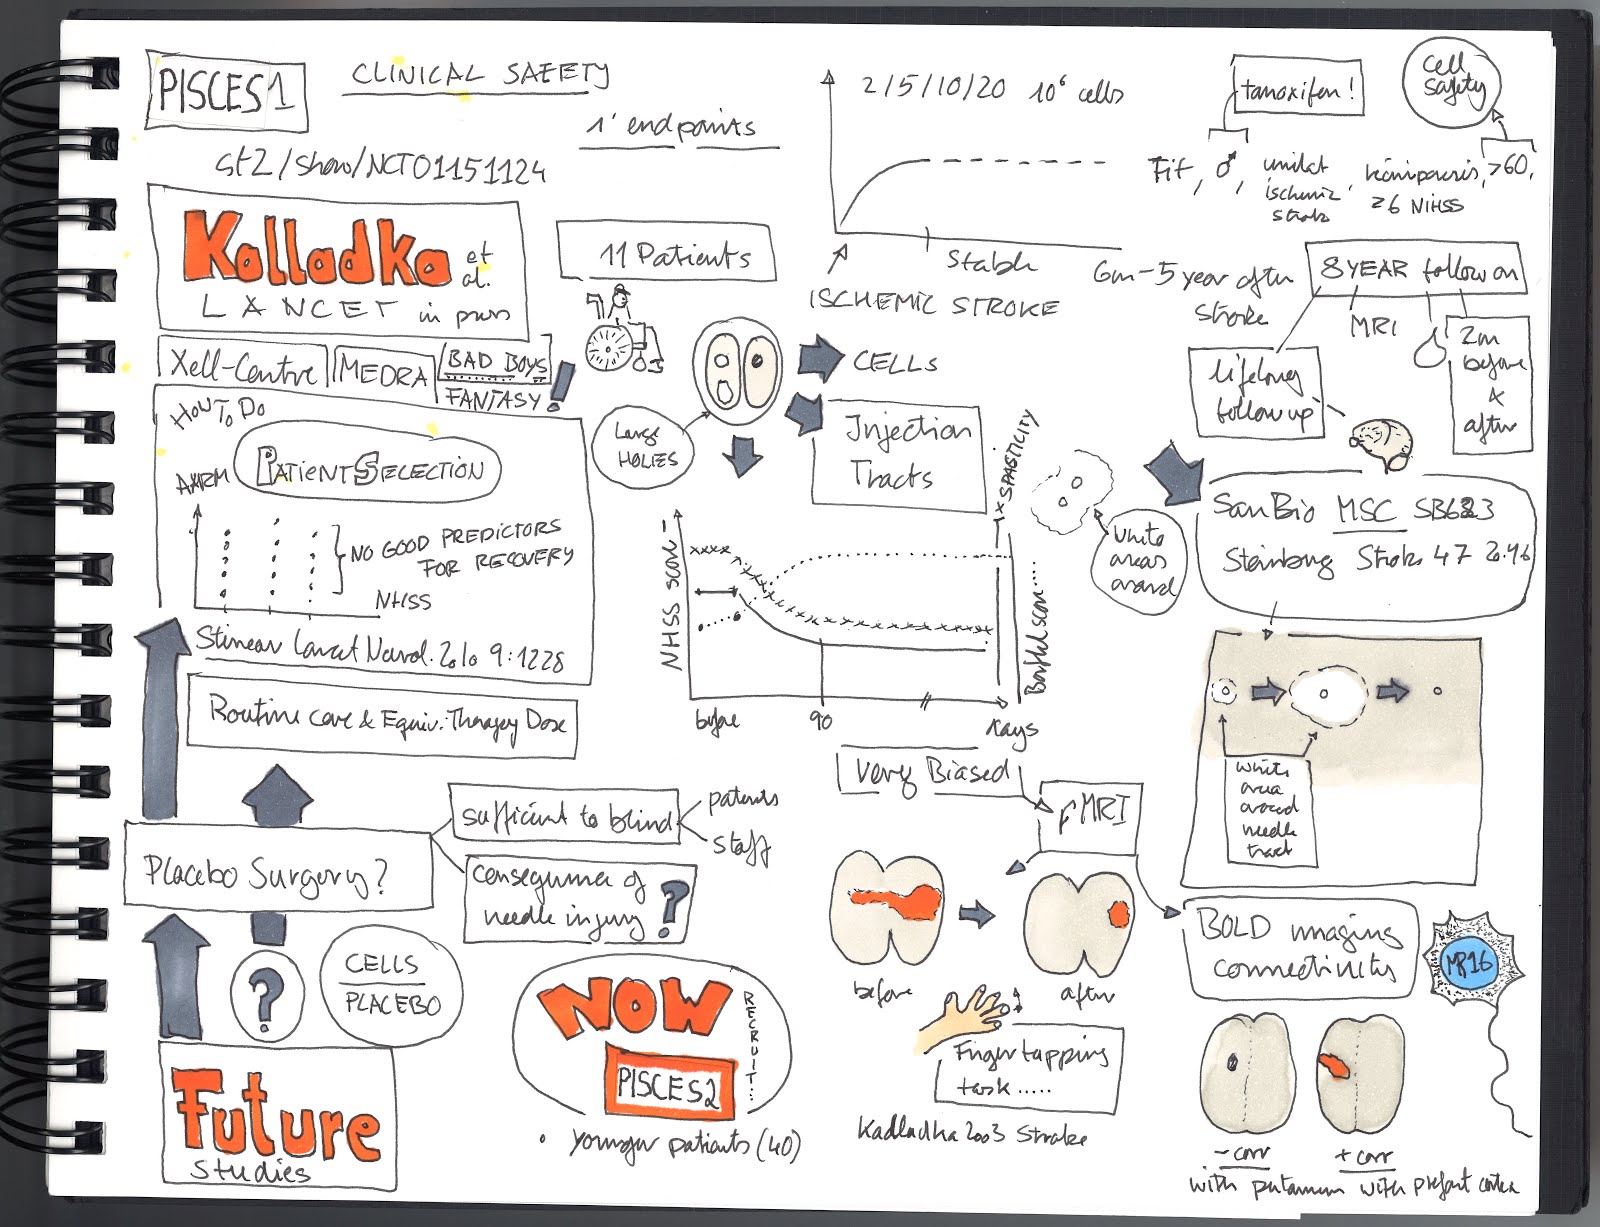 PISCES1
CLINICAL SAFETY
1' endpoints
st2/show/NCT01151124
Kalladka et al.
LANCET in press
Xcell-Centre
MEDRA
BAD BOYS
FANTASY!
HOW TO DO
PATIENT SELECTION
ARM
NO GOOD PREDICTORS
FOR RECOVERY
NHSS
Stinear Lancet Neurol. 2010 9:1228
Routine care & Equiv. Therapy Dose
Placebo Surgery?
sufficient to blind
patients
staff
consequence of
needle injury
?
?
CELLS
PLACEBO
Future
Studies
NOW
RECRUIT...
PISCES2
• younger patients (40)
11 Patients
Large
HOLES
CELLS
Injection
Tracts
2/5/10/20 10⁶ cells
Stable
ISCHEMIC STROKE
6m-5 year after
stroke
tamoxifen!
Cell
safety
Fit, ♂, unilat
ischemic
stroke,
hemiparesis,
≥6 NIHSS
>60,
8 YEAR follow on
MRI
lifelong
follow up
2m
before
&
after
NHSS score
x SPASTICITY
Barthel score.....
before
90
days
White
areas
around
SanBio MSC SB623
Steinberg Stroke 47 2016
white
area
around
needle
tract
Very Biased
fMRI
before
after
Finger tapping
task.....
Kalladka 2003 Stroke
BOLD imaging
connectivity
MP16
- corr
with putamen
+ corr
with prefront cortex